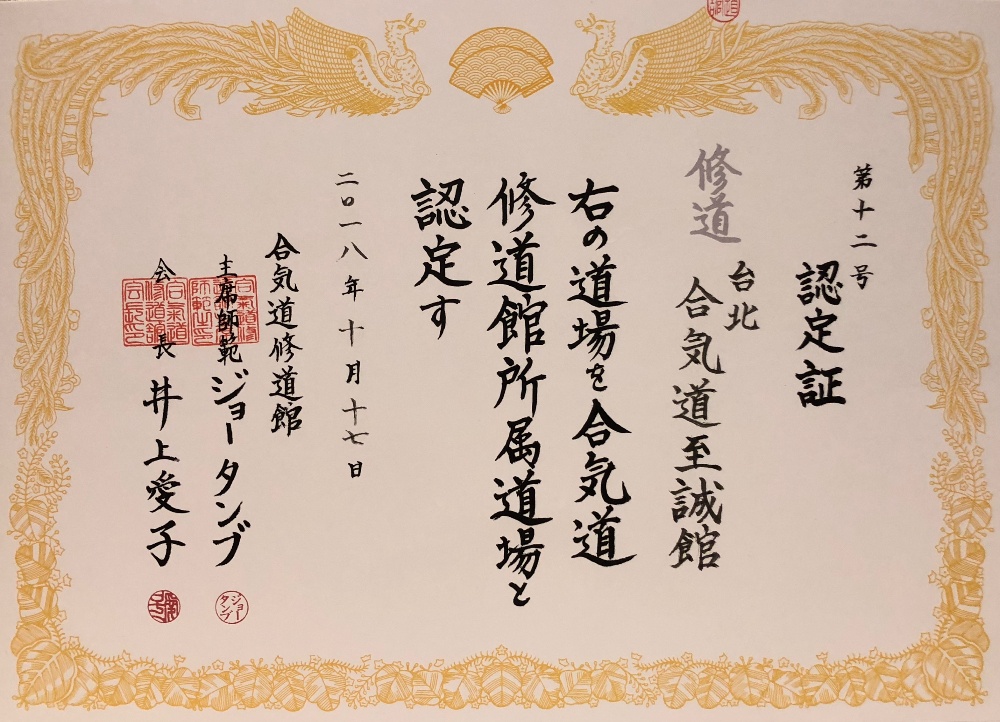 第十二号
認定証
台北
修道
合気道至誠館
右の道場を合気道
修道館所属道場と
認定す
二〇一八年十月十七日
合気道修道館
主席師範 ジョー タンブ
会長 井上愛子
ジョー
タンブ